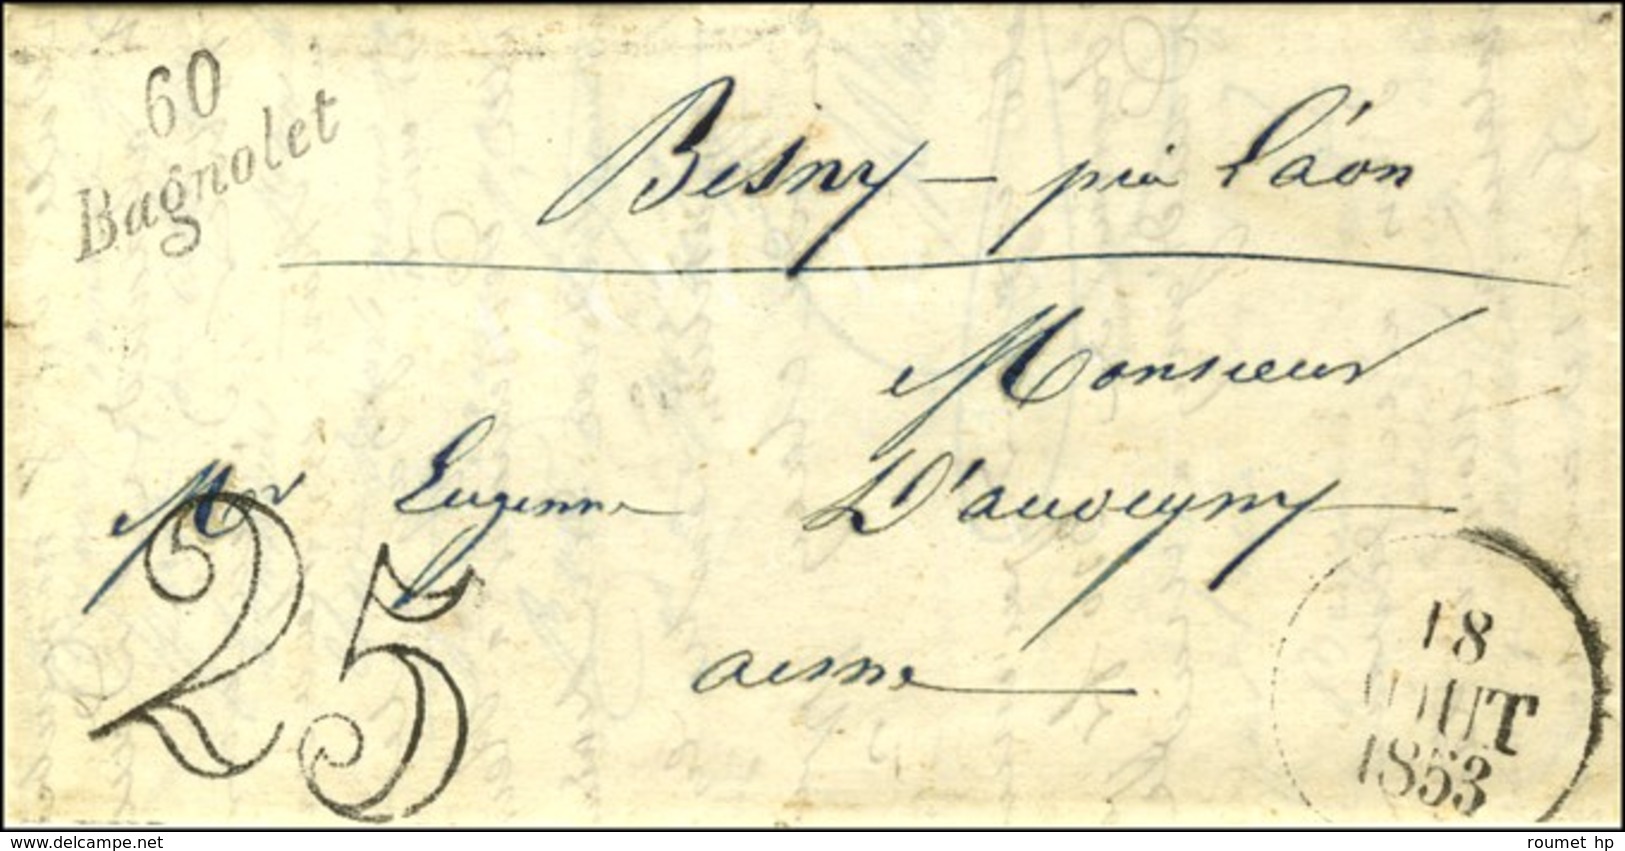 60
Bagnolet
Besny - près Láon
Monsieur
Mr Eugenne D'auveyny
aisne
25
18
AOUT
1853
www.delcampe.net
roumet hp